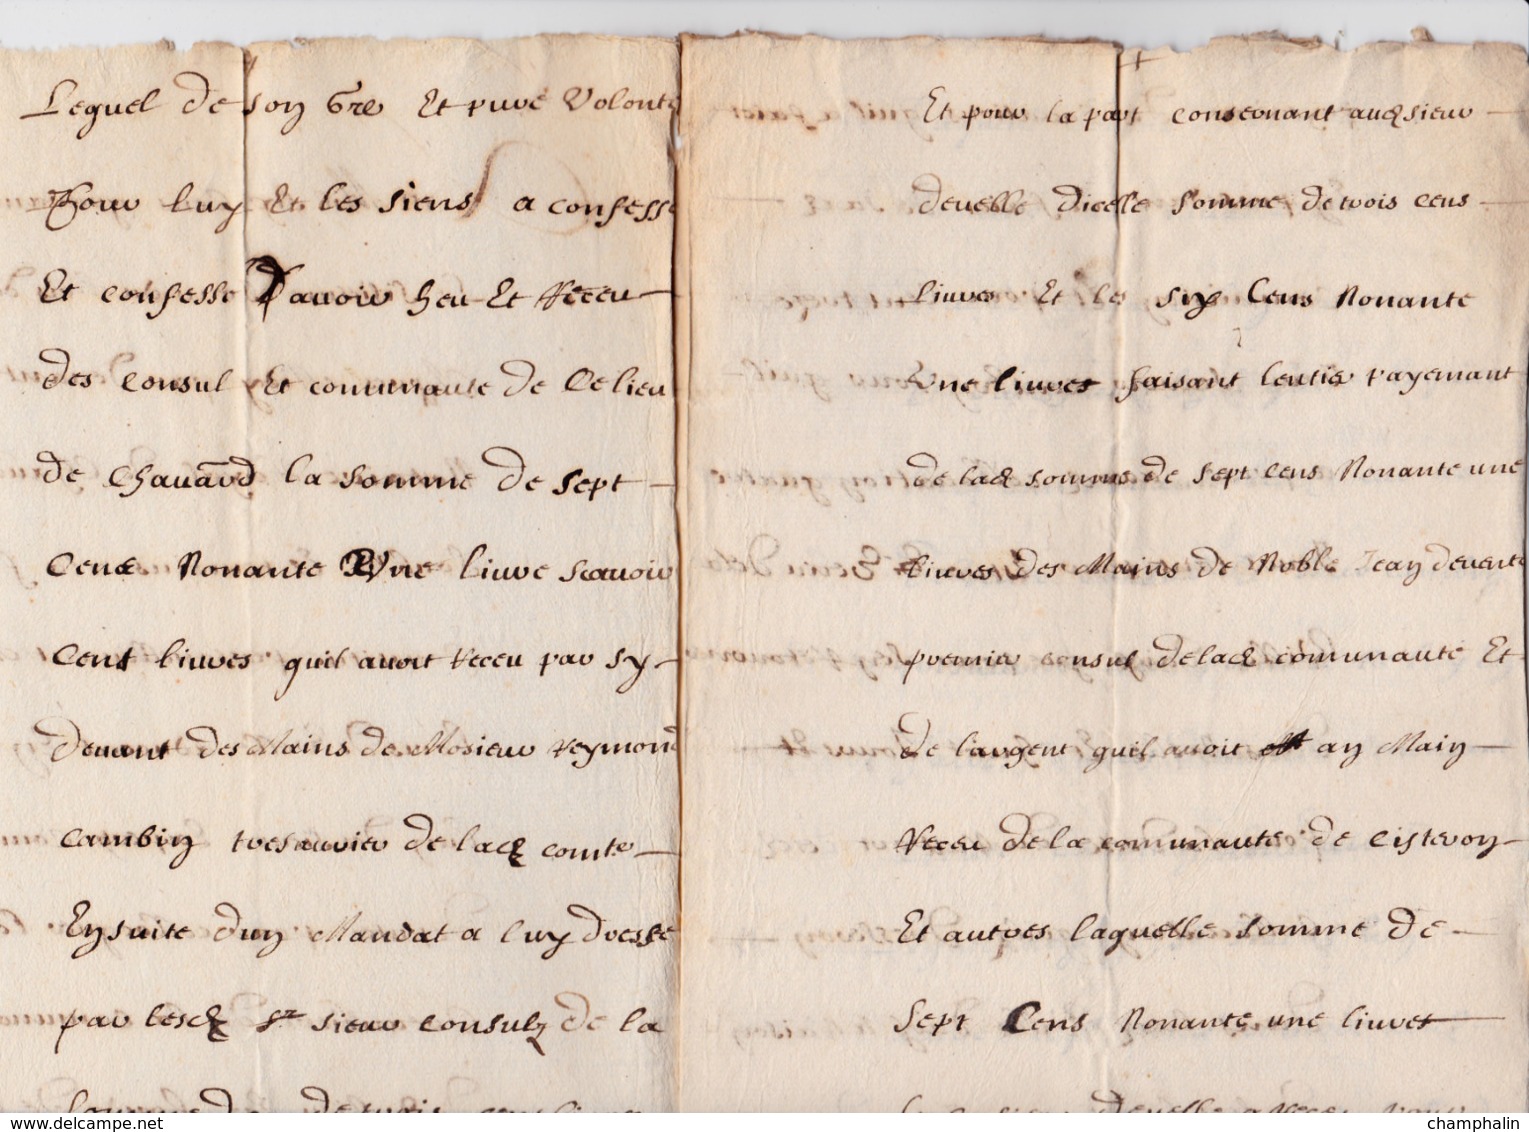 Lequel de son Gre Et pure Volonte
Pour luy Et les siens a confesse
Et confesse D'avoir heu Et Receu
des Consul Et communaute de Ce lieu
de Chavard la somme de sept
Cens Nonante Une livre scavoir
Cent livres quil avoit Receu par sy
devant des Mains de Mosieur Reymond
Cambin tresaurier de lad comte
Ensuite dun Mandat a luy dresse
par lesd Sr sieur consulz de la
somme de de trois cens livres
Et pour la part consernant aud sieur
devesle dicelle somme de trois cens
livres Et les six Cens Nonante
Une livres faisant lentier payemant
de lad somme de sept cens Nonante une
livres des Mains de Noble Jean devente
premier consul de lad comunaute Et
de largent quil avoit an Main
Receu de la communaute de Cisteron
Et autres laquelle somme de
Sept Cens Nonante une livres
led sieur devesle a Receu pour
delcampe.net
champhalin